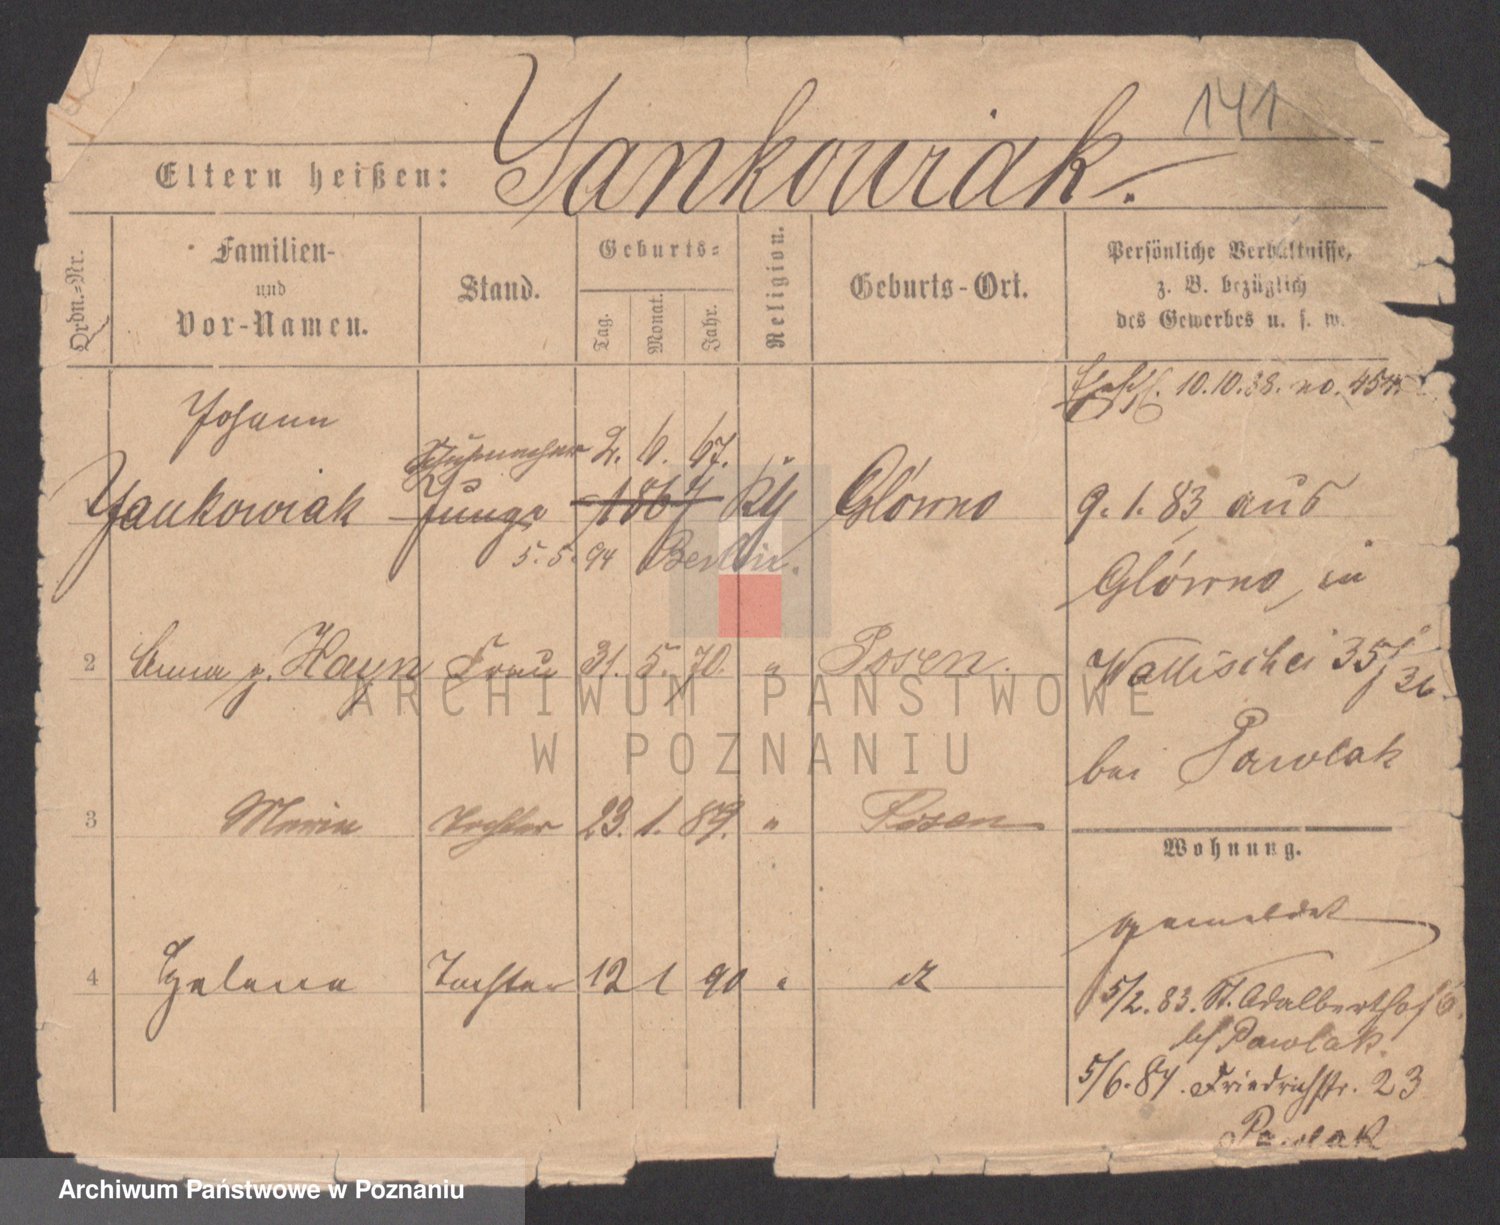 141
Eltern heißen: Yankowiak.
Ordn.-Nr.
Familien-
und
Vor-Namen.
Stand.
Geburts-
Tag. Monat. Jahr.
Religion.
Geburts-Ort.
Persönliche Verhältnisse,
z. B. bezüglich
des Gewerbes u. s. w.
10.10.88. no.
Johann
Schuhmacher 2. 6. 67.
Yankowiak Junge 1867 kth Główno
9. 1. 83 aus
5. 5. 94 Berlin.
Główno, in
2 Anna g. Hayn Frau 31. 5. 70. " Posen.
Wallischei 35/36.
bei Pawlak
3 Maria Tochter 23. 1. 89. " Posen
Wohnung.
gemeldet
4 Helena Tochter 12 1 90 "
5/2. 83. St. Adalberthof 6.
bei Pawlak.
5/6. 84. Friedrichstr. 23
Pawlak
ARCHIWUM PAŃSTWOWE
W POZNANIU
Archiwum Państwowe w Poznaniu